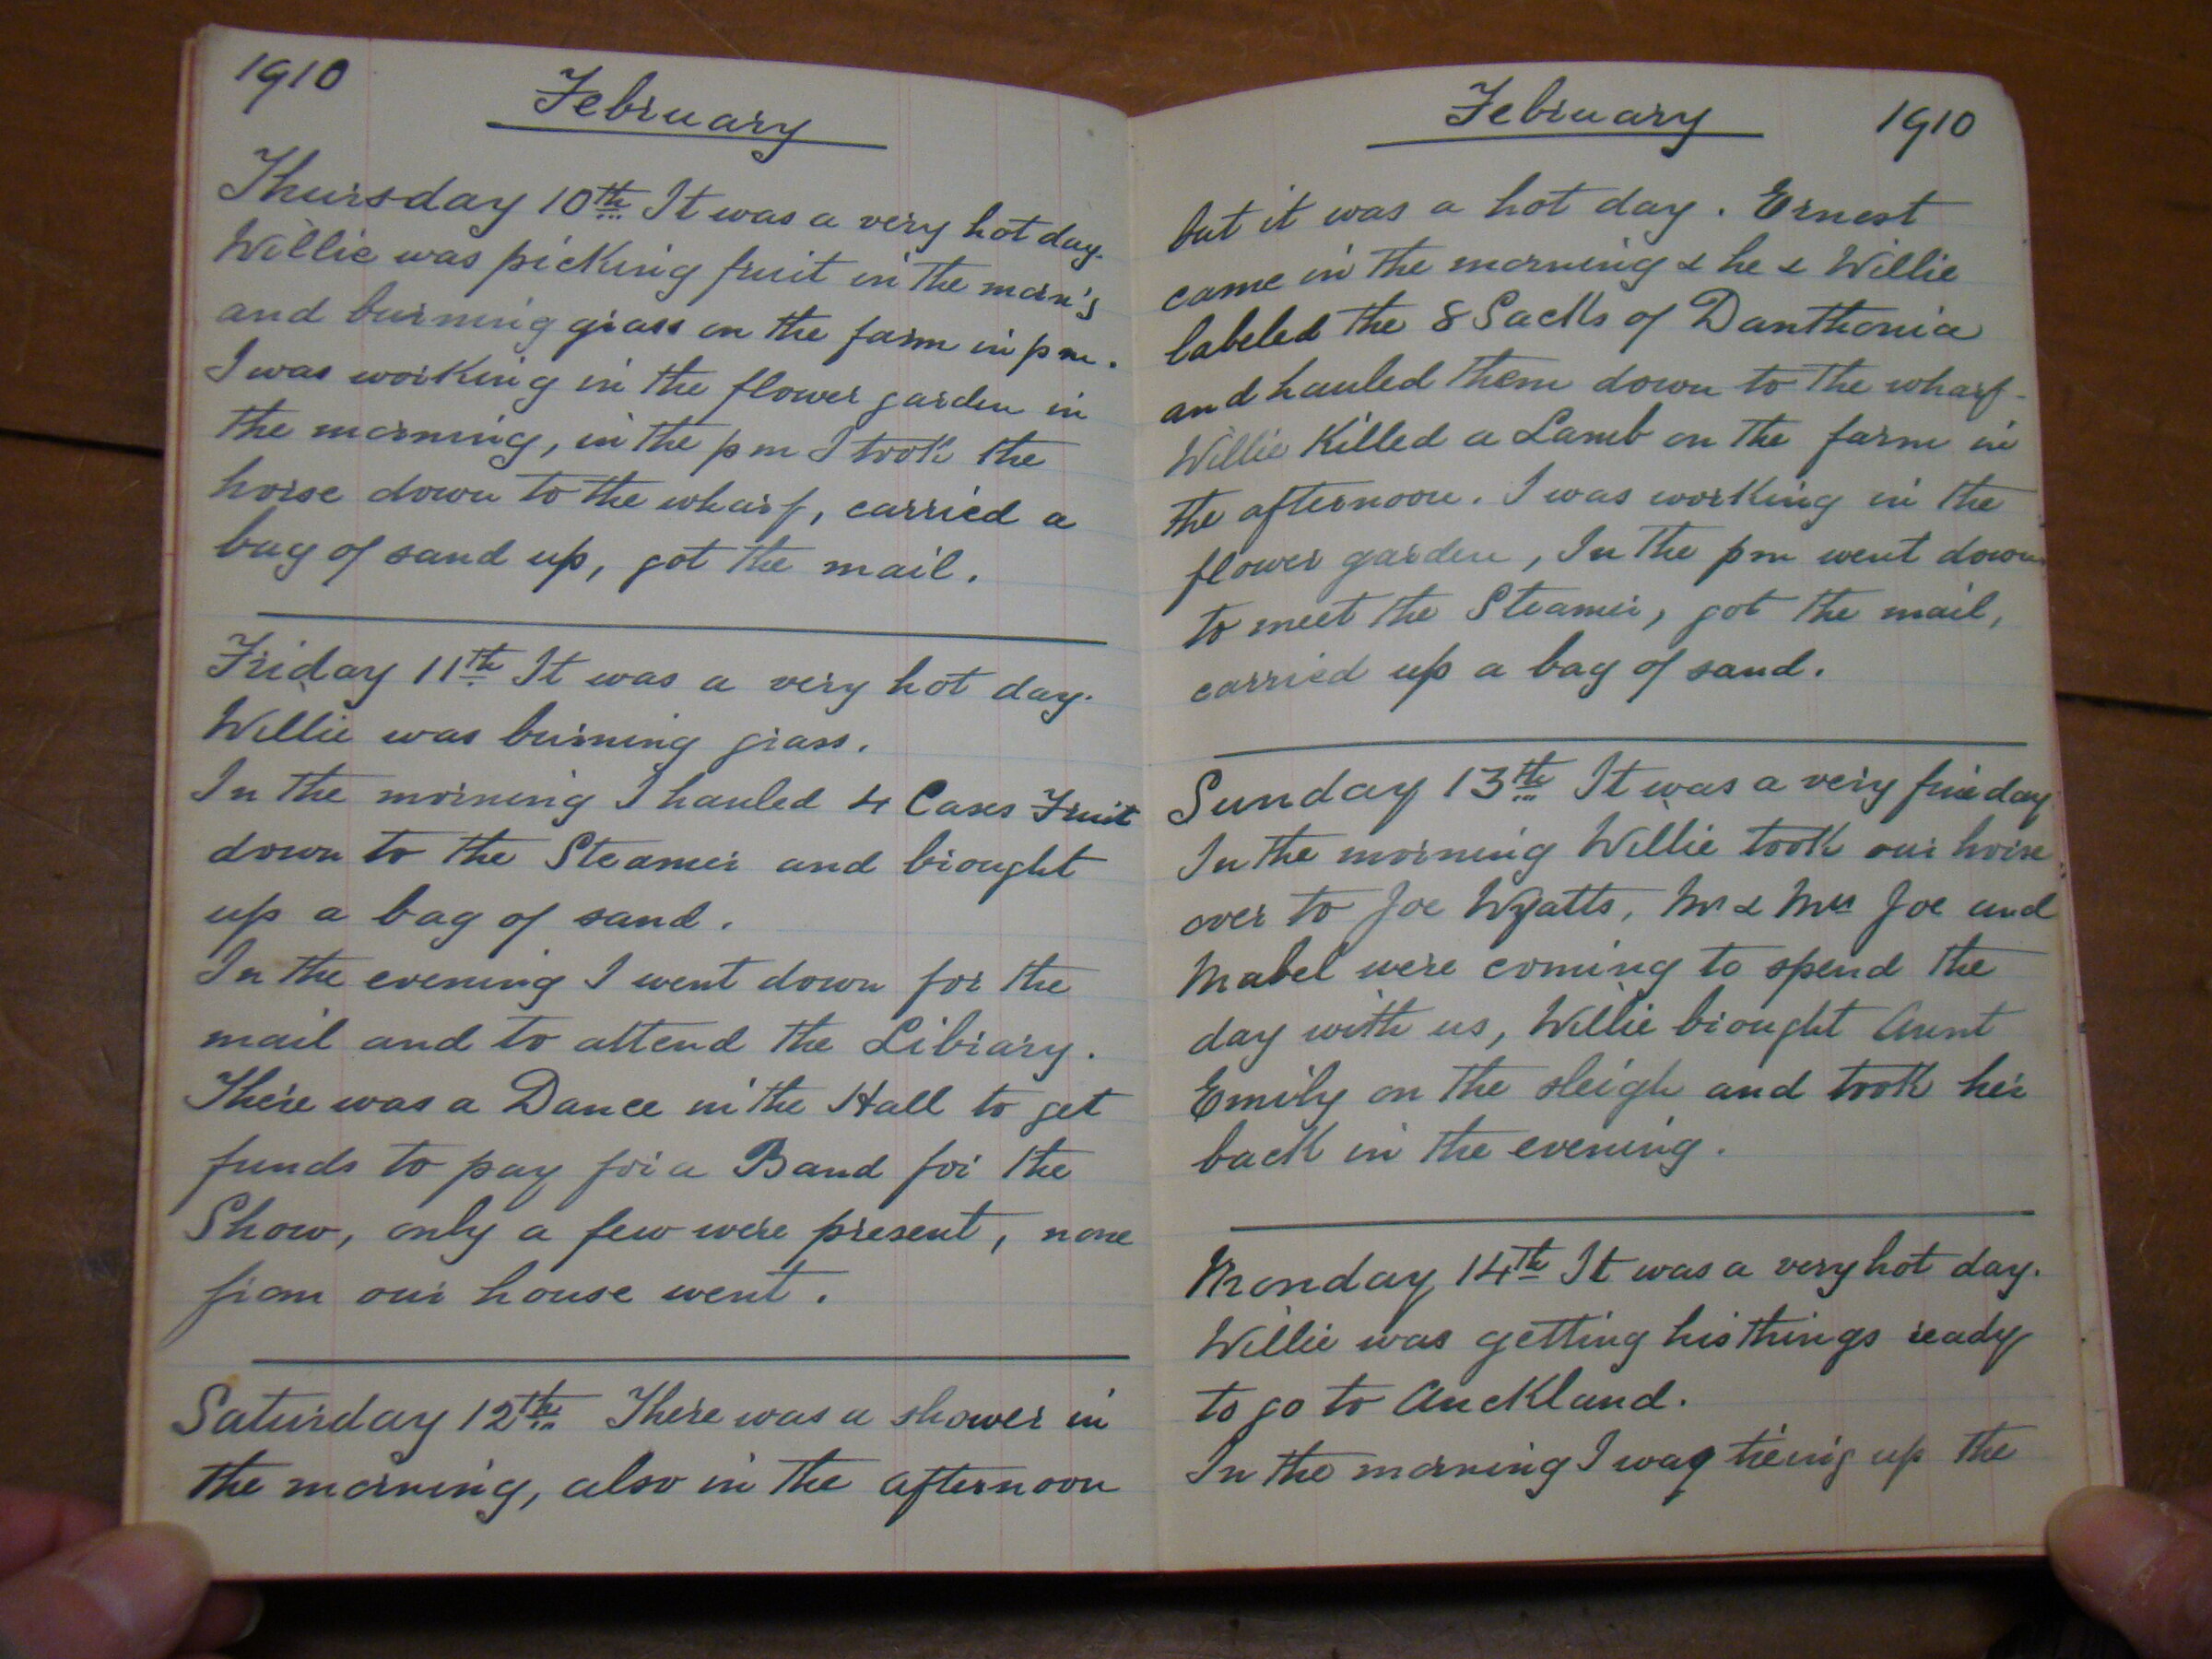 1910
February
Thursday 10th It was a very hot day.
Willie was picking fruit in the morn'g
and burning grass on the farm in pm.
I was working in the flower garden in
the morning, in the pm I took the
horse down to the wharf, carried a
bag of sand up, got the mail.
Friday 11th It was a very hot day.
Willie was burning grass.
In the morning I hauled 4 Cases Fruit
down to the Steamer and brought
up a bag of sand.
In the evening I went down for the
mail and to attend the Library.
There was a Dance in the Hall to get
funds to pay for a Band for the
Show, only a few were present, none
from our house went.
Saturday 12th There was a shower in
the morning, also in the afternoon
February 1910
but it was a hot day. Ernest
came in the morning & he & Willie
labeled the 8 Sacks of Danthonia
and hauled them down to the wharf-
Willie Killed a Lamb on the farm in
the afternoon. I was working in the
flower garden, In the pm went down
to meet the Steamer, got the mail,
carried up a bag of sand.
Sunday 13th It was a very fine day
In the morning Willie took our horse
over to Joe Wyatts, Mr & Mrs Joe and
Mabel were coming to spend the
day with us, Willie brought Aunt
Emily on the sleigh and took her
back in the evening.
Monday 14th It was a very hot day.
Willie was getting his things ready
to go to Auckland.
In the morning I was tieing up the